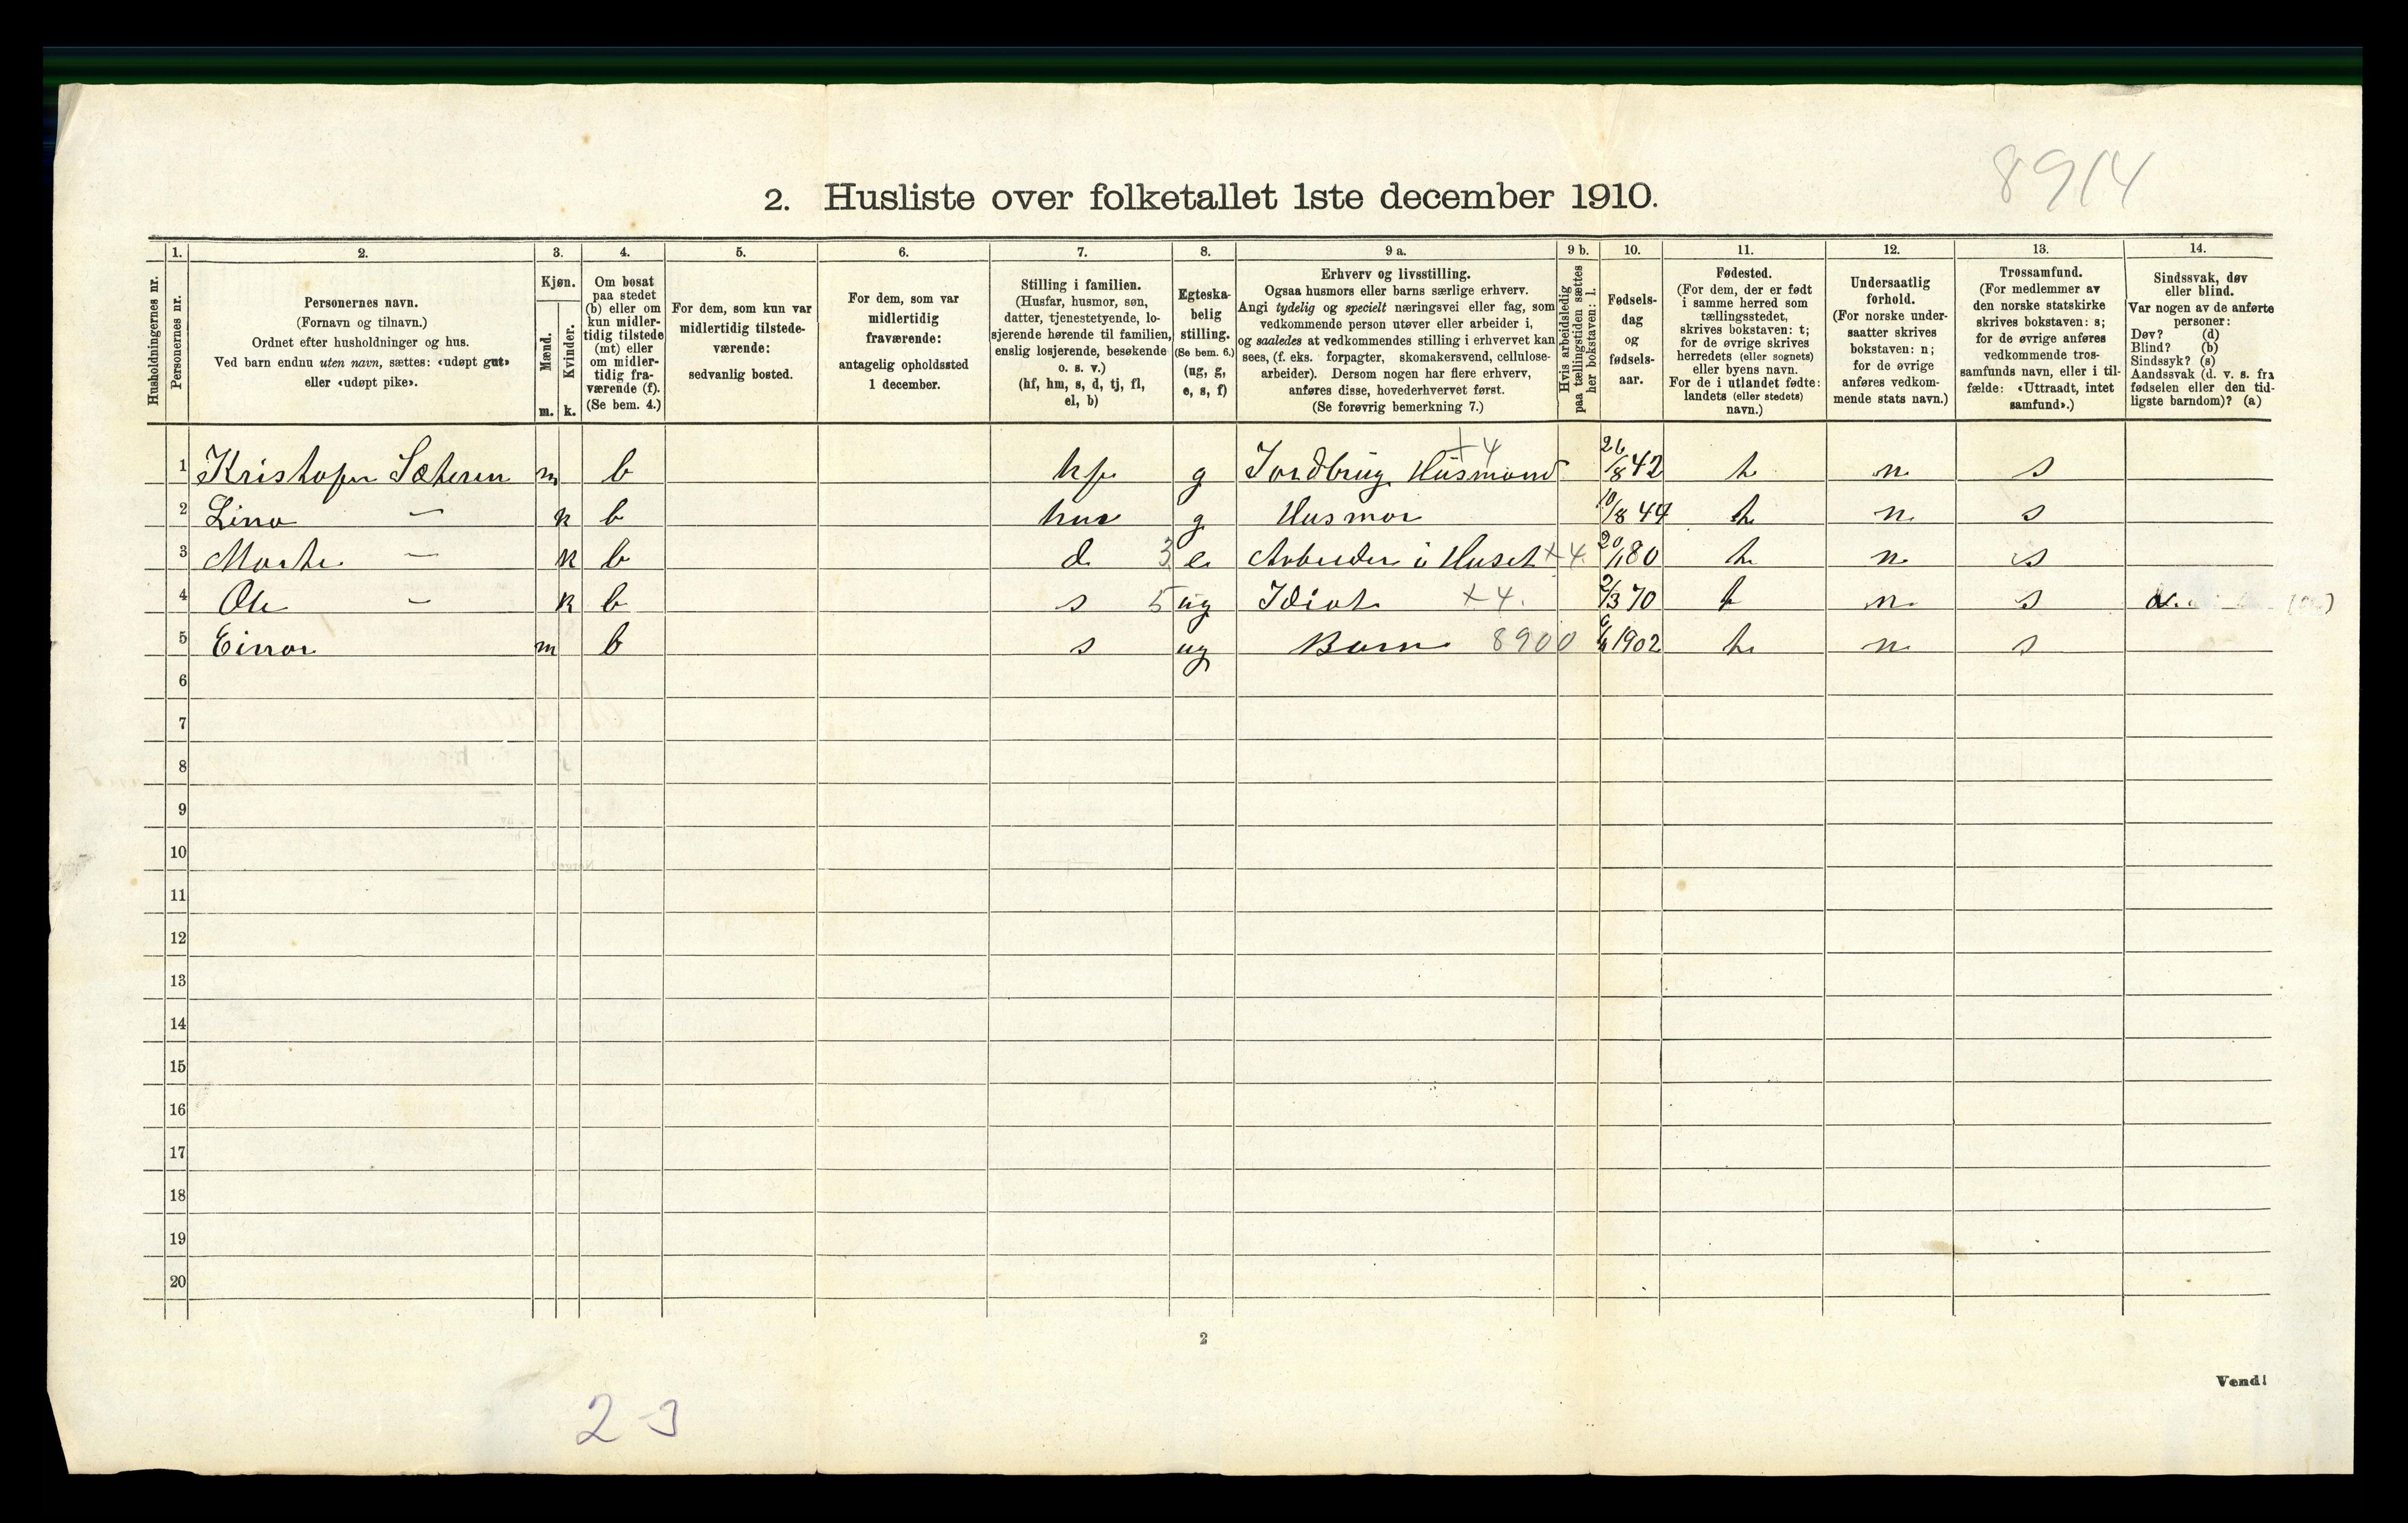 8914
2. Husliste over folketallet 1ste december 1910.
Husholdningernes nr.
1.
Personernes nr.
2.
Personernes navn.
(Fornavn og tilnavn.)
Ordnet efter husholdninger og hus.
Ved barn endnu uten navn, sættes: «udøpt gut»
eller «udøpt pike».
3.
Kjøn.
Mænd.
Kvinder.
m. k.
4.
Om bosat
paa stedet
(b) eller om
kun midler-
tidig tilstede
(mt) eller
om midler-
tidig fra-
værende (f).
(Se bem. 4.)
5.
For dem, som kun var
midlertidig tilstede-
værende:
sedvanlig bosted.
6.
For dem, som var
midlertidig
fraværende:
antagelig opholdssted
1 december.
7.
Stilling i familien.
(Husfar, husmor, søn,
datter, tjenestetyende, lo-
sjerende hørende til familien,
enslig losjerende, besøkende
o. s. v.)
(hf, hm, s, d, tj, fl,
el, b)
8.
Egteska-
belig
stilling.
(Se bem. 6.)
(ug, g,
e, s, f)
9 a.
Erhverv og livsstilling.
Ogsaa husmors eller barns særlige erhverv.
Angi tydelig og specielt næringsvei eller fag, som
vedkommende person utøver eller arbeider i,
og saaledes at vedkommendes stilling i erhvervet kan
sees, (f. eks. forpagter, skomakersvend, cellulose-
arbeider). Dersom nogen har flere erhverv,
anføres disse, hovederhvervet først.
(Se forøvrig bemerkning 7.)
9 b.
Hvis arbeidsledig
paa tællingstiden sættes
her bokstaven: l.
10.
Fødsels-
dag
og
fødsels-
aar.
11.
Fødested.
(For dem, der er født
i samme herred som
tællingsstedet,
skrives bokstaven: t;
for de øvrige skrives
herredets (eller sognets)
eller byens navn.
For de i utlandet fødte:
landets (eller stedets)
navn.)
12.
Undersaatlig
forhold.
(For norske under-
saatter skrives
bokstaven: n;
for de øvrige
anføres vedkom-
mende stats navn.)
13.
Trossamfund.
(For medlemmer av
den norske statskirke
skrives bokstaven: s;
for de øvrige anføres
vedkommende tros-
samfunds navn, eller i til-
fælde: «Uttraadt, intet
samfund».)
14.
Sindssvak, døv
eller blind.
Var nogen av de anførte
personer:
Døv? (d)
Blind? (b)
Sindssyk? (s)
Aandssvak (d. v. s. fra
fødselen eller den tid-
ligste barndom)? (a)
1 Kristofer Sæteren m b hf g Jordbrug Husmand +4 26/8 42 t n s
2 Lina — k b hm g Husmor 10/8 44 t n s
3 Marte — k b d 3 e Arbeider i Huset +4 80 t n s
4 Ole — k b s 5 ug Idiot +4. 2/3 70 t n s a.
5 Einar m b s ug Barn 8900 1902 t n s
6
7
8
9
10
11
12
13
14
15
16
17
18
19
20
2
Vend!
2-3